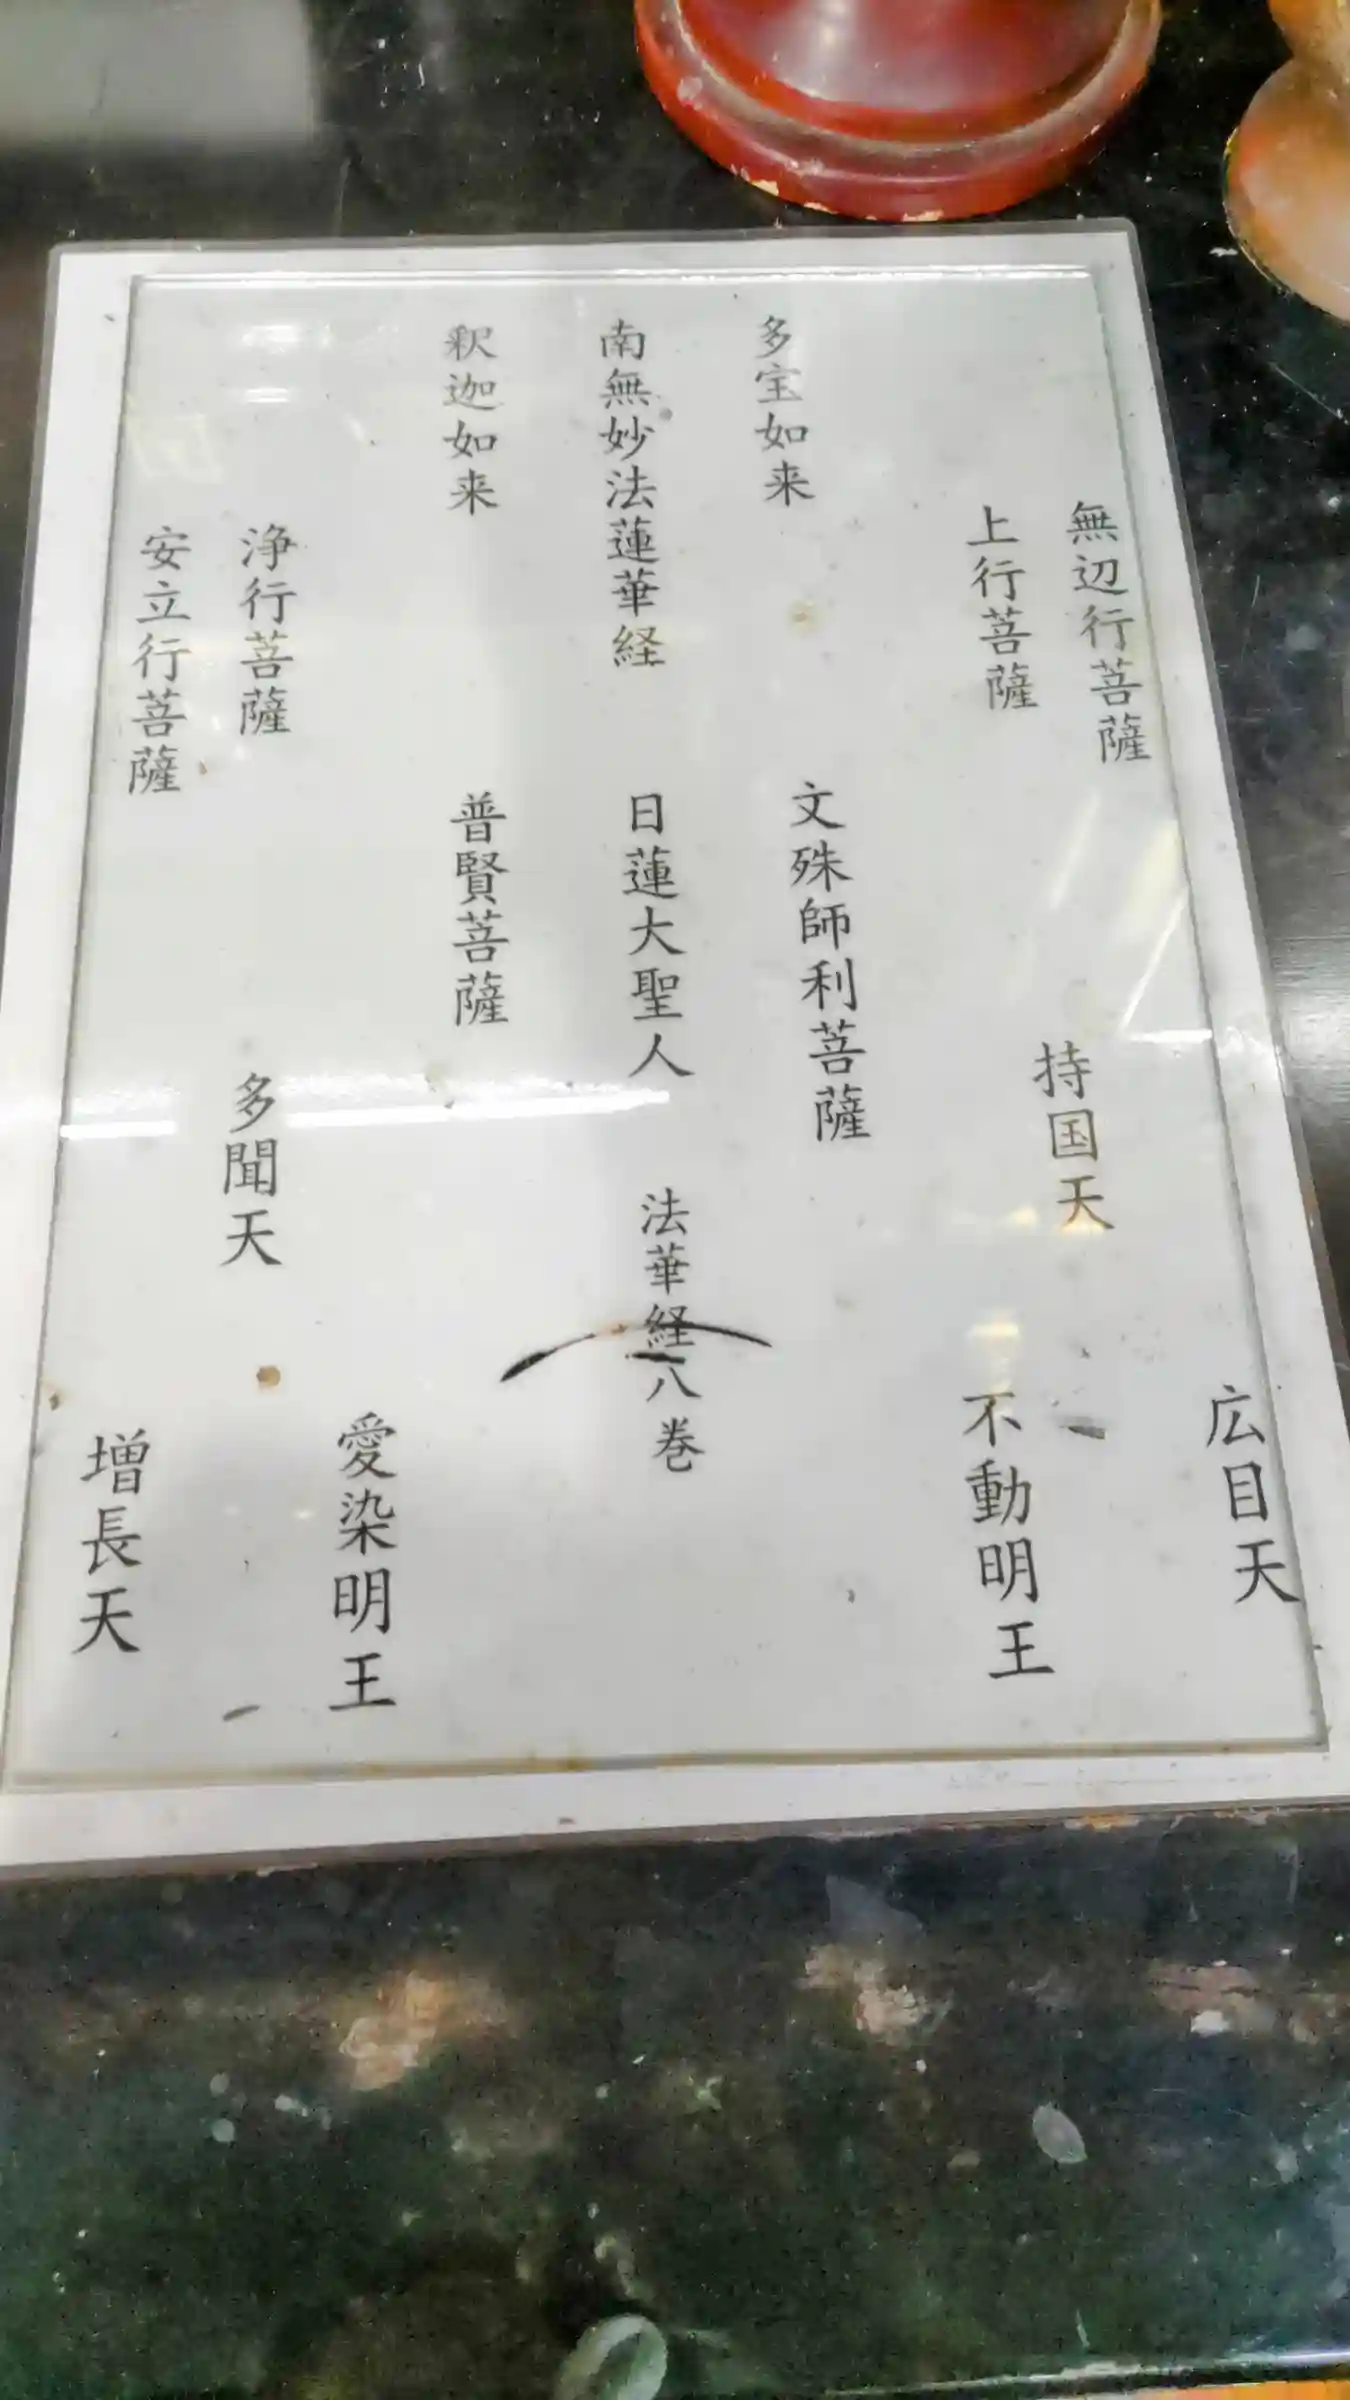 無辺行菩薩
上行菩薩
多宝如来
南無妙法蓮華経
釈迦如来
浄行菩薩
安立行菩薩
文殊師利菩薩
日蓮大聖人
普賢菩薩
持国天
法華経八巻
多聞天
広目天
不動明王
愛染明王
増長天